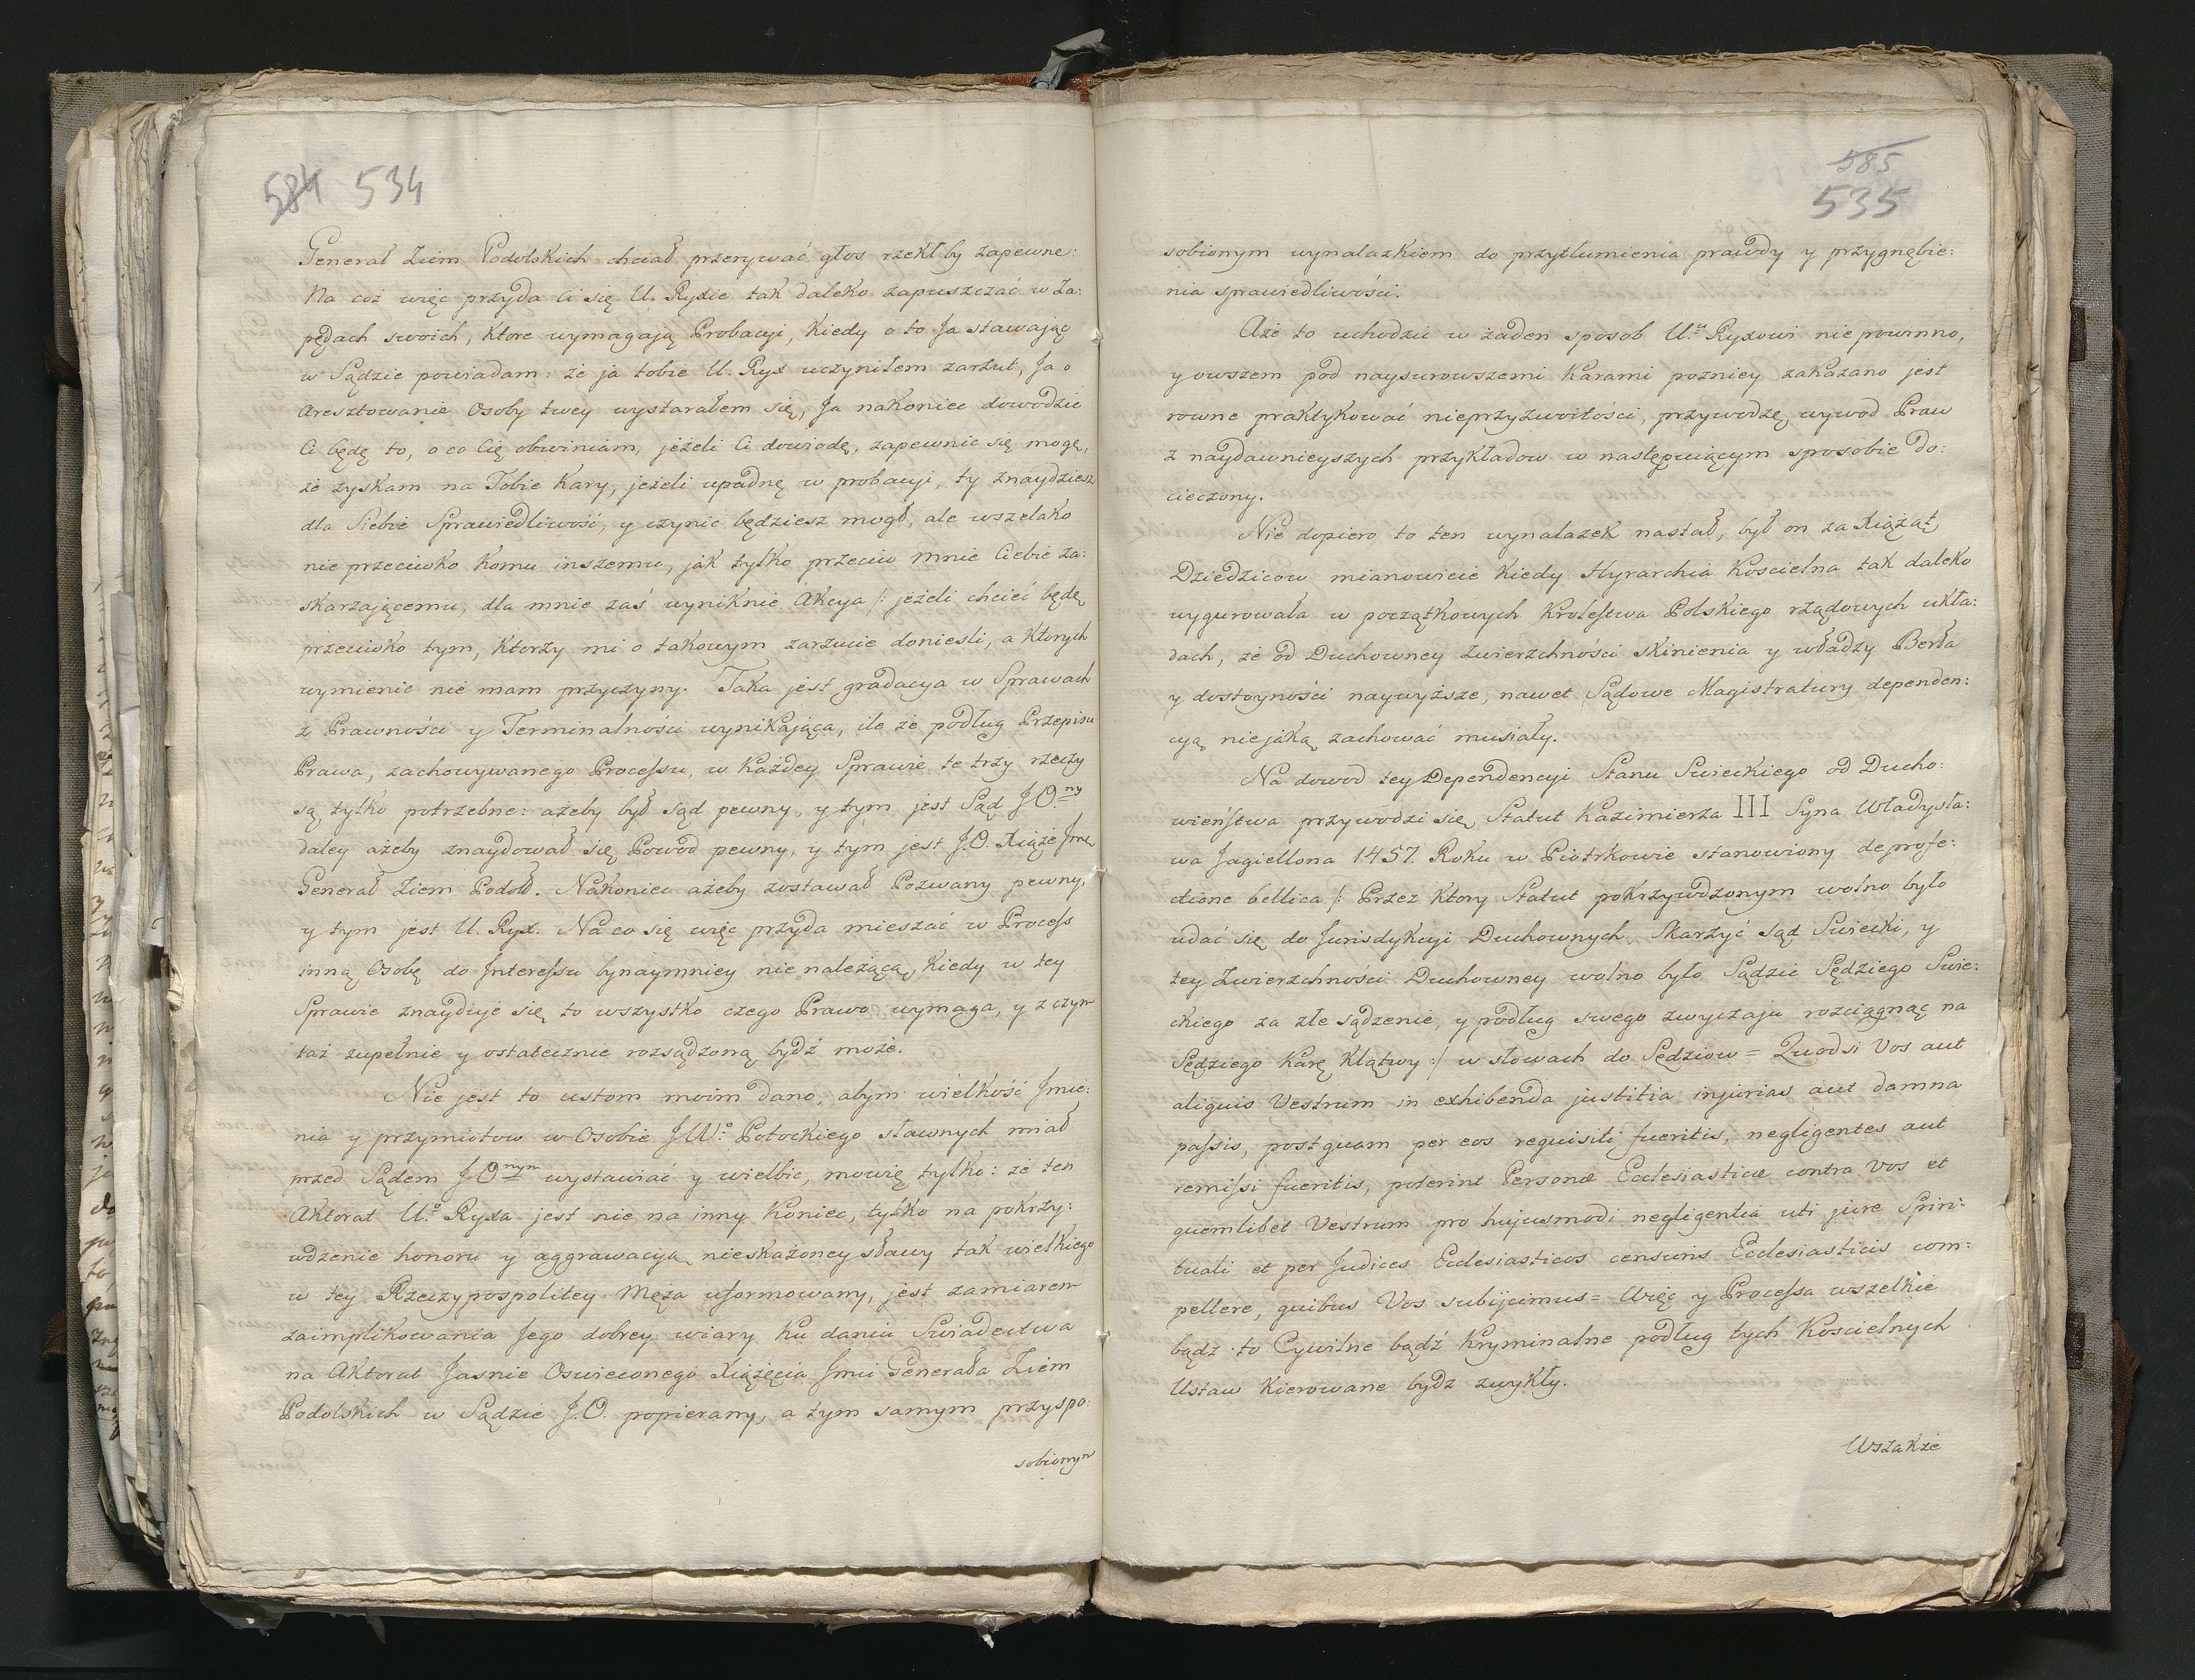 584 534
Generał Ziem Podolskich chciał przerywać głos rzekł by zapewne:
Na coż więc przyda Ci się U. Ryxie tak daleko zapuszczać w Za:
pędach swoich, ktore wymagają Probacyi, kiedy o to Ja stawając
w Sądzie powiadam: że ja tobie U. Ryx uczyniłem zarzut, Ja o
Aresztowanie Osoby twey wystarałem się, Ja nakoniec dowodzić
Ci będę to, o co Cię obwiniam, jeżeli Ci dowiodę, zapewnic się mogę,
że zyskam na Tobie Kary, jeżeli upadnę w probacyi, ty znaydziesz
dla Siebie Sprawiedliwość, y czynic będziesz mogł, ale wszelako
nie przeciwko Komu inszemu, jak tylko przeciw mnie Ciebie za:
skarzającemu, dla mnie zaś wyniknie Akcya /: jeżeli chcieć będę
przeciwko tym, ktorzy mi o takowym zarzucie doniesli, a ktorych
wymienic nie mam przyczyny. Taka jest gradacya w Sprawach
z Prawności y Terminalności wynikająca, ile że podług Przepisu
Prawa, zachowywanego Processu, w każdey Sprawie te trzy rzeczy
są tylko potrzebne: ażeby był sąd pewny, y tym jest Sąd J.O.ny
daley ażeby znaydował się Powod pewny, y tym jest J.O. Xiąże Jmć
Generał Ziem Podol. Nakoniec ażeby zostawał Pozwany pewny,
y tym jest U. Ryx. Na co się więc przyda mieszać w Process
inną Osobę do Interessu bynaymniey nie należącą, kiedy w tey
Sprawie znayduje się to wszystko czego Prawo wymaga, y z czym
taż zupełnie y ostatecznie rozsądzoną bydź może.
Nie jest to ustom moim dano, abym wielkość Jmie:
nia y przymiotow w Osobie JW.o Potockiego sławnych miał
przed Sądem J.O.nym wystawiać y wielbic, mowię tylko: że ten
Aktorat U.o Ryxa jest nie na inny koniec, tylko na pokrzy:
wdzenie honoru y aggrawacyą nieskażoney sławy tak wielkiego
w tey Rzeczypospolitey Męża uformowany, jest zamiarem
zaimplikowania Jego dobrey wiary ku daniu Swiadectwa
na Aktorat Jasnie Oswieconego Xiążęcia Jmci Generała Ziem
Podolskich w Sądzie J.O. popierany, a tym samym przyspo:
sobionym
585
535
sobionym wynalazkiem do przytłumienia prawdy y przygnębie:
nia sprawiedliwości.
Aże to uchodzic w żaden sposob U.u Ryxowi nie powinno,
y owszem pod naysurowszemi Karami pozniey zakazano jest
rowne praktykować nieprzyzwoitości, przywodzę wywod Praw
z naydawnieyszych przykładow w następuiącym sposobie do:
cieczony.
Nie dopiero to ten wynalazek nastał, był on za Xiążąt
Dziedzicow mianowicie kiedy Hyrarchia Koscielna tak daleko
wygurowała w początkowych Krolestwa Polskiego rządowych ukła:
dach, że od Duchowney Zwierzchności skinienia y władzy Berła
y dostoyności naywyższe, nawet Sądowe Magistratury dependen:
cyą niejaką zachować musiały.
Na dowod tey Dependencyi Stanu Swieckiego od Ducho:
wieństwa przywodzi się Statut Kazimierza III Syna Władysła:
wa Jagiellona 1457. Roku w Piotrkowie stanowiony de profe:
ctione bellica /: Przez ktory Statut pokrzywdzonym wolno było
udać się do Jurisdykcyi Duchownych Skarżyć Sąd Swiecki, y
tey Zwierzchności Duchowney wolno było Sądzic Sędziego Swie:
ckiego za złe sądzenie, y podług swego zwyczaju rozciągnąć na
Sędziego Karę Klątwy :/ w słowach do Sędziow = Quodsi Vos aut
aliquis Vestrum in exhibenda justitia injurias aut damna
passis, postquam per eos requisiti fueritis, negligentes aut
remissi fueritis, poterint Personæ Ecclesiasticæ contra Vos et
quemlibet Vestrum pro hujusmodi negligentia uti jure Spiri:
tuali et per Judices Ecclesiasticos censuris Ecclesiasticis com:
pellere, quibus Vos subijcimus = Więc y Processa wszelkie
bądź to Cywilne bądź Kryminalne podług tych Koscielnych
Ustaw kierowane bydz zwykły.
Wszakże